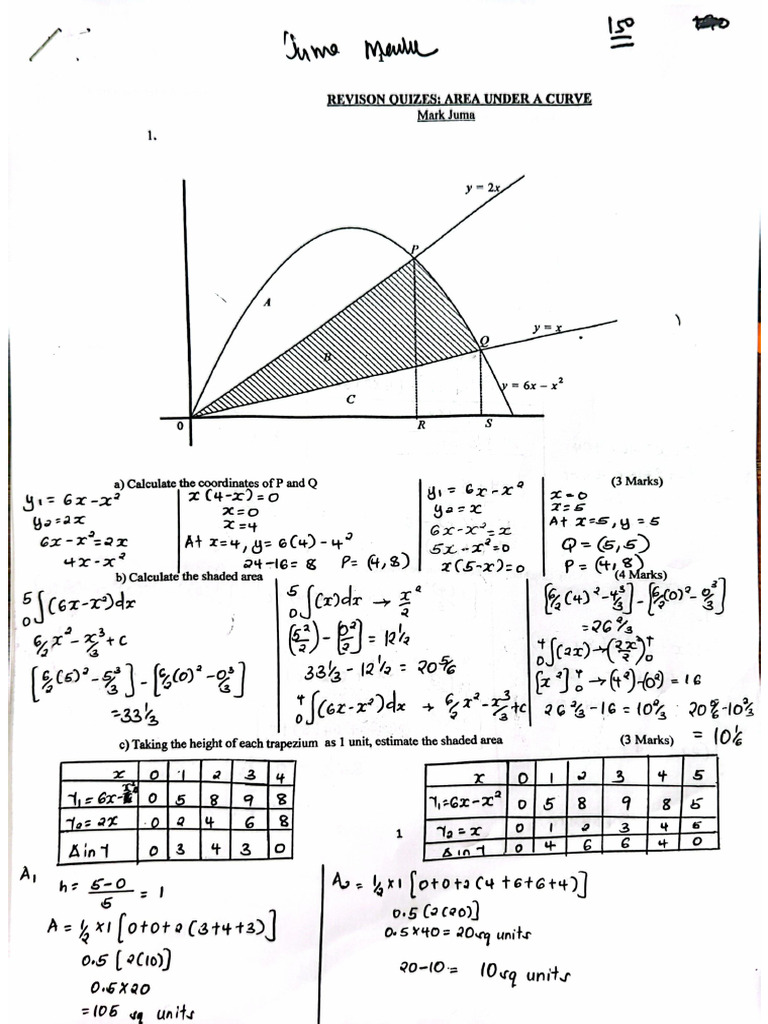 Juma
150
REVISON QUIZES: AREA UNDER A CURVE
Mark Juma
1.
y = 2x
P
A
y = x
Q
B
y = 6x – x²
C
0 R S
a) Calculate the coordinates of P and Q (3 Marks)
y₁ = 6x-x²
y₂ = 2x
6x-x²=2x
4x-x²
x(4-x)=0
x=0
x=4
At x=4, y=6(4)-4²
24-16=8 P=(4,8)
y₁ = 6x-x²
y₂=x
6x-x²=x
5x-x²=0
x(5-x)=0
x=0
x=5
At x=5, y=5
Q=(5,5)
P=(4,8)
b) Calculate the shaded area (4 Marks)
⁵₀∫(6x-x²)dx
6/2x²-x³/3+c
[6/2(5)²-5³/3]-[6/2(0)²-0³/3]
=33⅓
⁵₀∫(x)dx → x²/2
[5²/2]-[0²/2]=12½
33⅓-12½=20⅚
⁴₀∫(6x-x²)dx → 6/2x²-x³/3+c
[6/2(4)²-4³/3]-[6/2(0)²-0³/3]
=26⅔
⁴₀∫(2x)→(2x²/2)⁴₀
[x²]⁴₀→(4²)-(0²)=16
26⅔-16=10⅔ 20⅚-10⅔
=10⅙
c) Taking the height of each trapezium as 1 unit, estimate the shaded area (3 Marks)
x 0 1 2 3 4
Y₁=6x-x² 0 5 8 9 8
Y₂=2x 0 2 4 6 8
Δ in Y 0 3 4 3 0
A₁
h=5-0/5=1
A=½×1[0+0+2(3+4+3)]
0.5[2(10)]
0.5×20
=105 sq units
x 0 1 2 3 4 5
Y₁=6x-x² 0 5 8 9 8 5
Y₂=x 0 1 2 3 4 5
Δ in Y 0 4 6 6 4 0
1
A₂=½×1[0+0+2(4+6+6+4)]
0.5[2(20)]
0.5×40=20sq units
20-10= 10sq units